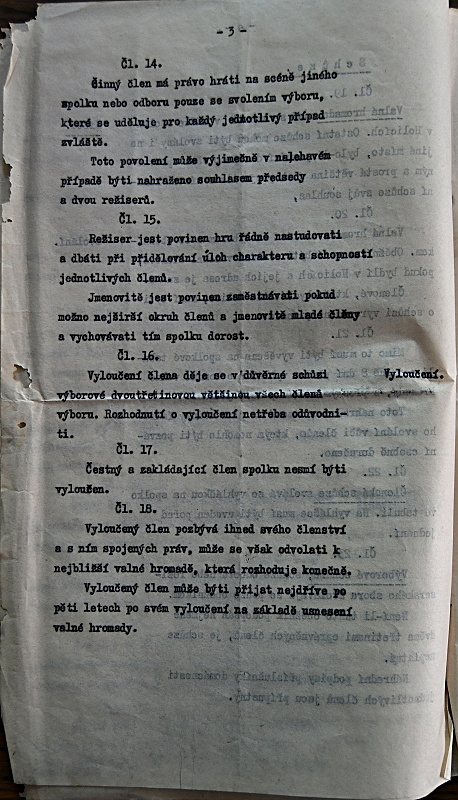 - 3 -
Čl. 14.
Činný člen má právo hráti na scéně jiného
spolku nebo odboru pouze se svolením výboru,
které se uděluje pro každý jednotlivý případ
zvláště.
Toto povolení může výjimečně v nalehavém
případě býti nahraženo souhlasem předsedy
a dvou režiserů.
Čl. 15.
Režiser jest povinen hru řádně nastudovati
a dbáti při přidělování úloh charakteru a schopností
jednotlivých členů.
Jmenovitě jest povinen zaměstnávati pokud
možno nejširší okruh členů a jmenovitě mladé členy
a vychovávati tím spolku dorost.
Čl. 16.
Vyloučení člena děje se v důvěrné schůzi Vyloučení.
výborové dvoutřetinovou většinou všech členů
výboru. Rozhodnutí o vyloučení netřeba odůvodni-
ti.
Čl. 17.
Čestný a zakládající člen spolku nesmí býti
vyloučen.
Čl. 18.
Vyloučený člen pozbývá ihned svého členství
a s ním spojených práv, může se však odvolati k
nejbližší valné hromadě, která rozhoduje konečně.
Vyloučený člen může býti přijat nejdříve po
pěti letech po svém vyloučení na základě usnesení
valné hromady.